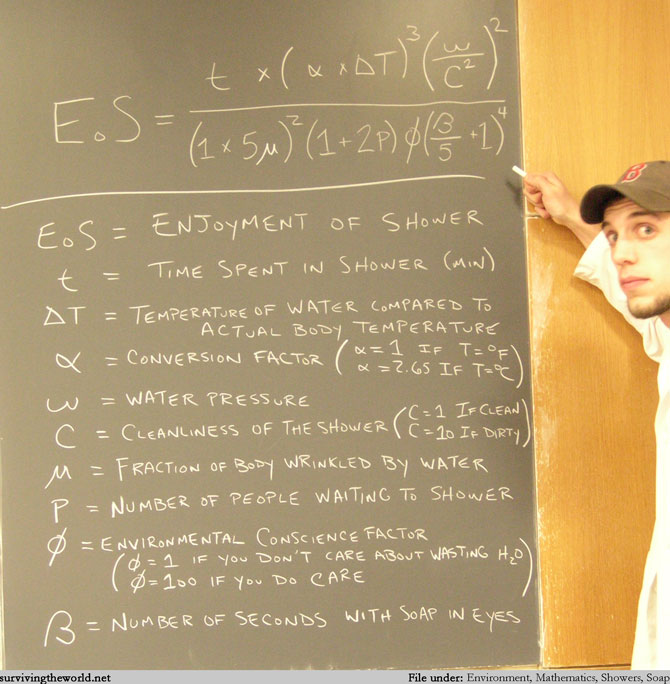 EoS = t × (α × ΔT)³ (w/C²)² / (1 × 5μ)² (1+2P) ϕ (β/5 +1)⁴
EoS = ENJOYMENT OF SHOWER
t = TIME SPENT IN SHOWER (MIN)
ΔT = TEMPERATURE OF WATER COMPARED TO
ACTUAL BODY TEMPERATURE
α = CONVERSION FACTOR (α = 1 IF T=°F
α = 2.65 IF T=°C)
w = WATER PRESSURE
C = CLEANLINESS OF THE SHOWER (C=1 IF CLEAN
C=10 IF DIRTY)
μ = FRACTION OF BODY WRINKLED BY WATER
P = NUMBER OF PEOPLE WAITING TO SHOWER
ϕ = ENVIRONMENTAL CONSCIENCE FACTOR
(ϕ = 1 IF YOU DON'T CARE ABOUT WASTING H₂O
ϕ = 100 IF YOU DO CARE)
β = NUMBER OF SECONDS WITH SOAP IN EYES
B
survivingtheworld.net
File under: Environment, Mathematics, Showers, Soap